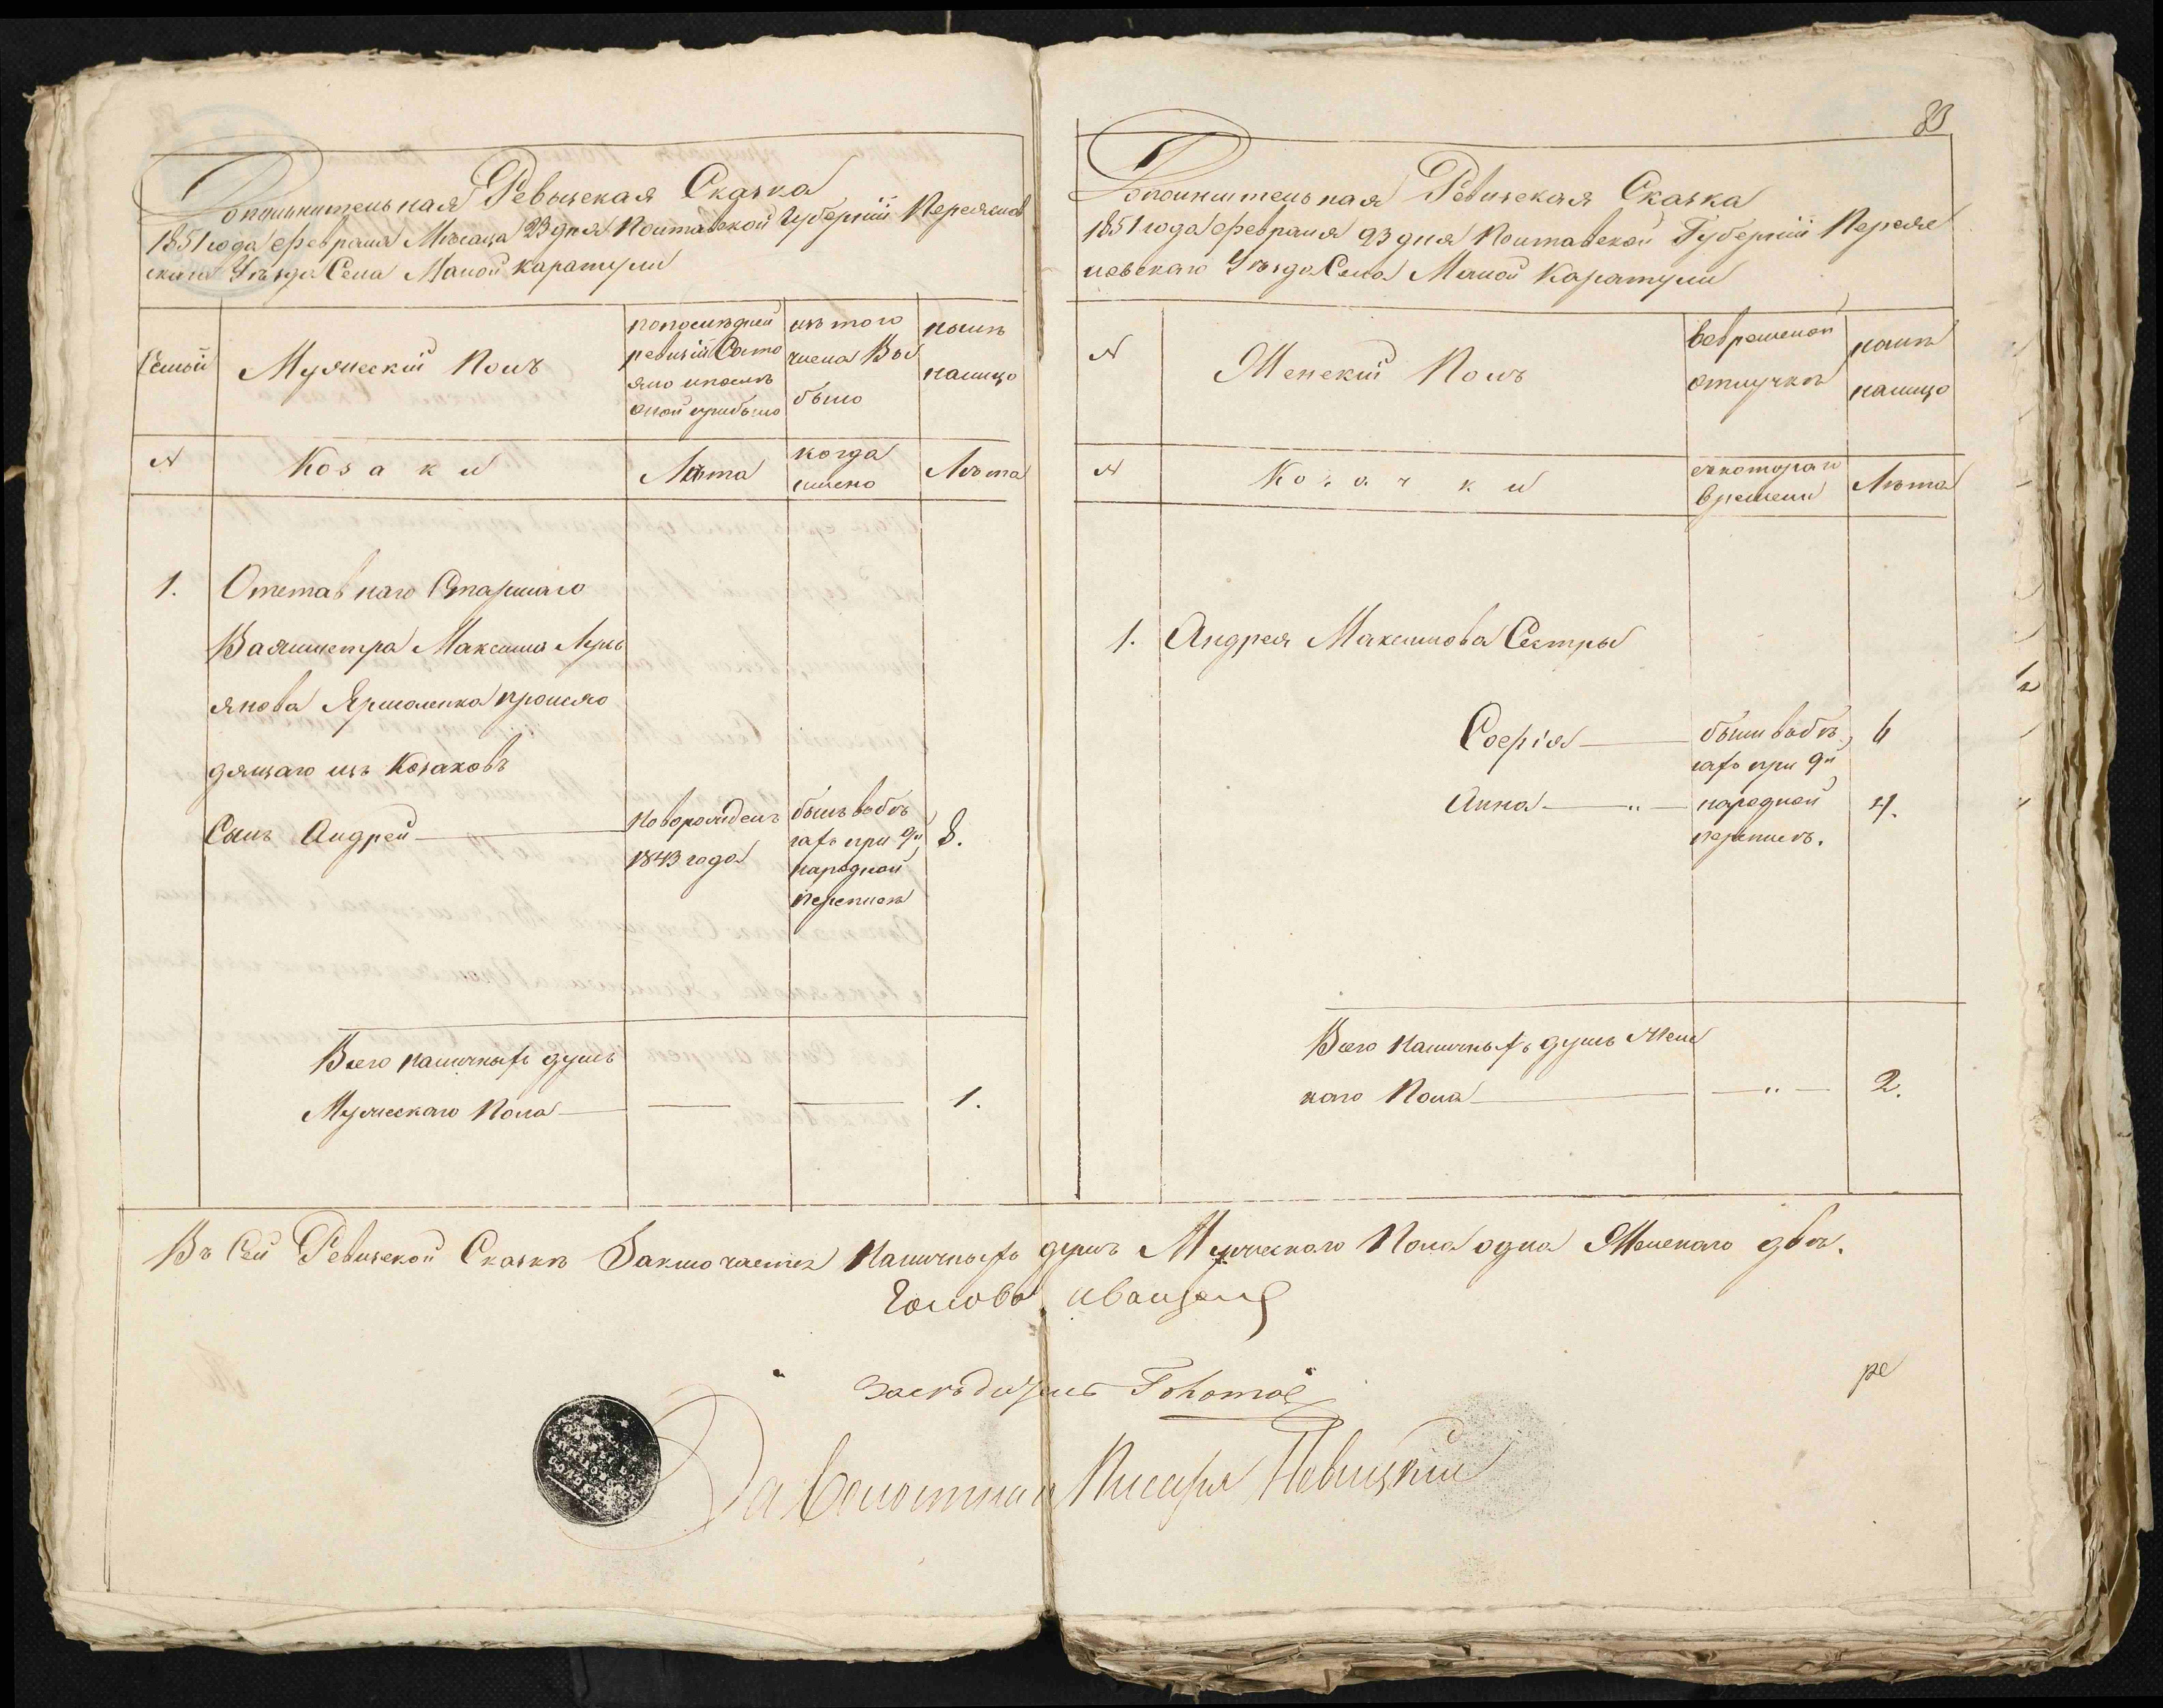 Дополнительная Ревизская Сказка
1851 года февраля Мѣсяца 23 дня Полтавской Губерніи Переяслов
скаго Уѣзда Села Малой Каратули
Семьи
Мужескій Полъ
по последней
ревизіи Состо
яло и послѣ
оной прибыло
изъ того
числа Вы
было
нынѣ
налицо
N
Козаки
Лѣта
когда
имено
Лѣта
1.
Отставнаго Старшаго
Вахмистра Максима Лукь
янова Ярмоленка происхо
дящаго изъ Козаковъ
Сынъ Андрей
новорожденъ
1843 года
былъ вобѣ
гахъ при 9й
народной
переписѣ
8.
Всего наличныхъ душъ
Мужескаго Пола
1.
83
Дополнительная Ревизская Сказка
1851 года февраля 23 дня Полтавской Губерніи Переяс
ловскаго Уѣзда Села Малой Каратули
N
Женскій Полъ
вовременой
отлучкѣ
нынѣ
налицо
N
Козачки
съкотораго
времени
Лѣта
1.
Андрея Максимова Сестры
Софія
были вобѣ
гахъ при 9й
6
Анна
народной
переписѣ.
4.
Всего Наличныхъ душъ Женс
каго Пола
2.
Въ Сей Ревизской Сказкѣ Заключается Наличныхъ душъ Мужескаго Пола одна Женскаго двѣ.
Голова
За Волостнаго Писаря Невицкій